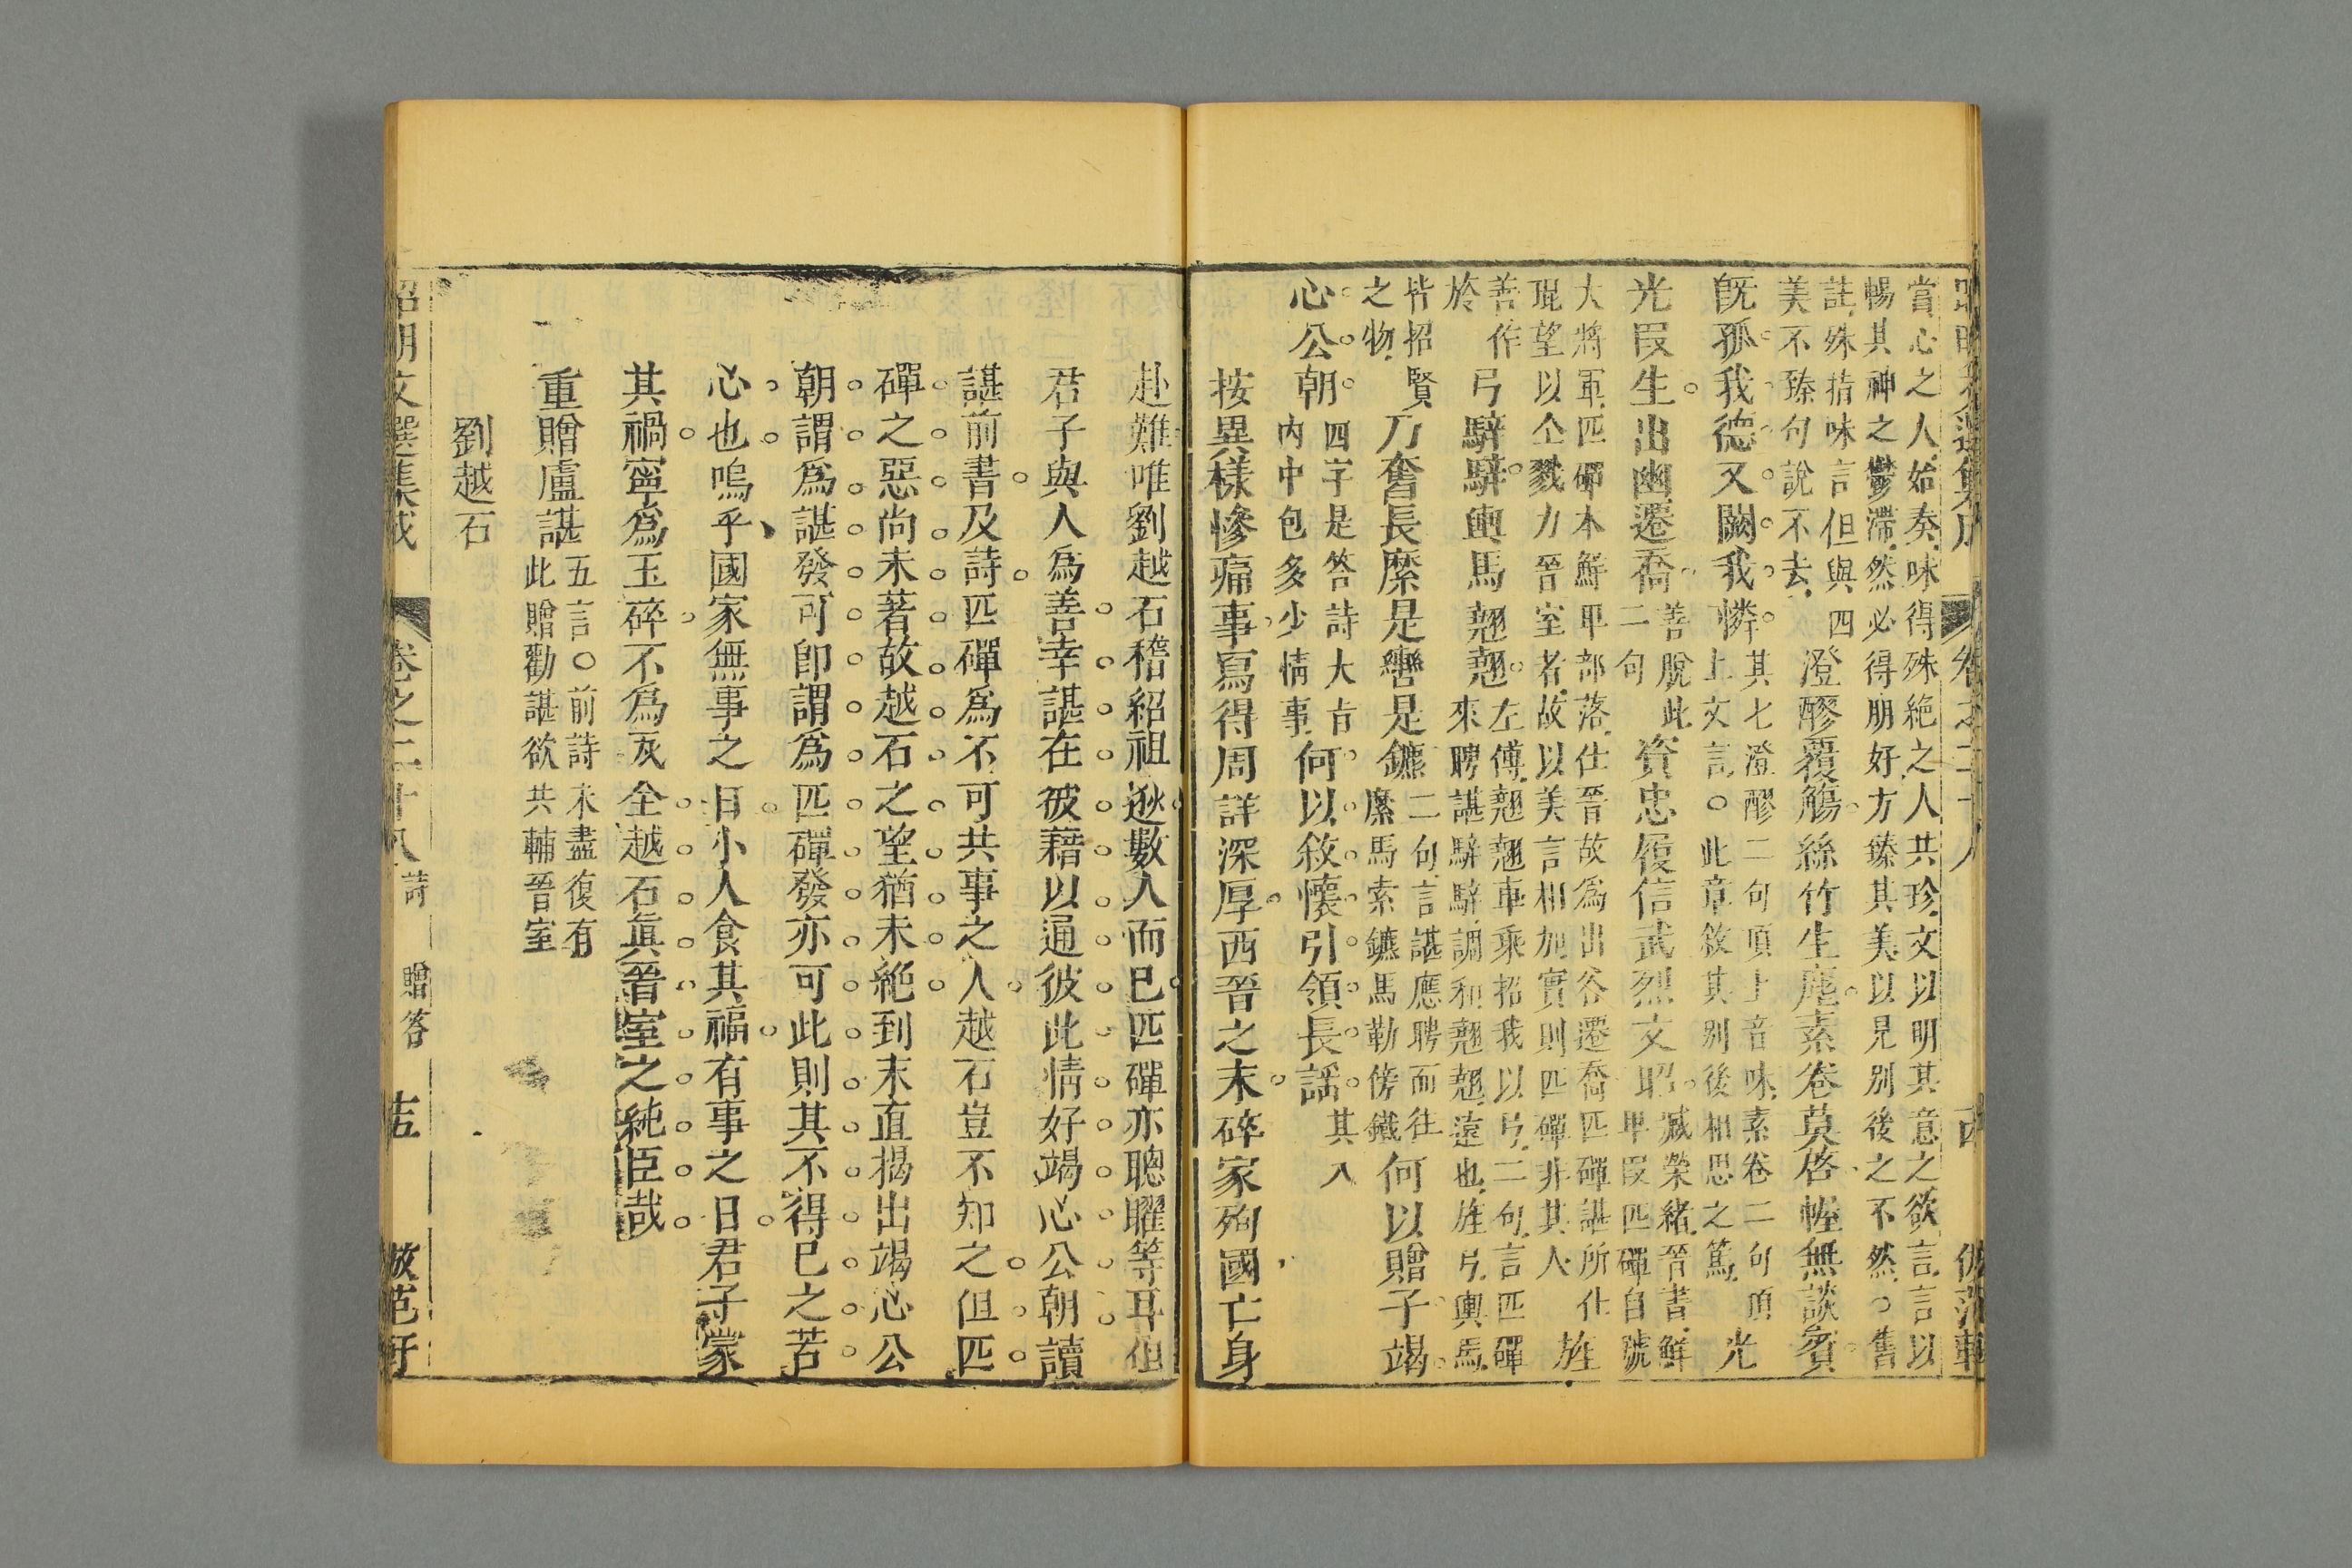 當心之人始奏味得殊絶之人共珍文以明其意之欲言言以
暢其神之鬱滯然必得朋好方臻其美以見别後之不然○舊
註殊指味言但與四
美不臻句說不去
澄醪覆觴絲竹生塵素卷莫啓幄無談賓
旣孤我德又闕我憐
其七澄醪二句頂上音味素卷二句頂
上文言○此章敘其别後相思之篤
光
光叚生出幽遷喬
善脫此
二句
資忠履信武烈文昭
臧榮緒晉書鮮
卑叚匹磾自號
大將軍匹磾本鮮卑部落仕晉故爲出谷遷喬匹磾諶所仕
琨望以仝戮力晉室者故以美言相加實則匹磾非其人
旌
善作
於
弓騂騂輿馬翹翹
左傅翹翹車乘招我以弓二句言匹磾
來聘諶騂騂調和翹翹遠也旌弓輿馬
皆招賢
之物
乃奮長縻是轡是鑣
二句言諶應聘而往
縻馬索鑣馬勒傍鐵
何以贈子竭
心公朝
四字是答詩大㫖
内中包多少情事
何以敘懷引領長謡
其八
按異樣慘痛事寫得周詳深厚西晉之末碎家殉國亡身
赴難唯劉越石稽紹祖逖數人而已匹磾亦聰曜等耳但
君子與人爲善幸諶在彼藉以通彼此情好竭心公朝讀
諶前書及詩匹磾爲不可共事之人越石豈不知之但匹
磾之惡尚未著故越石之望猶未絶到末直揭出竭心公
朝謂爲諶發可卽謂爲匹磾發亦可此則其不得已之苦
心也嗚乎國家無事之日小人食其福有事之日君子蒙
其禍寧爲玉碎不爲瓦全越石眞晉室之純臣哉
重贈盧諶
五言○前詩未盡復有
此贈勸諶欲共輔晉室
劉越石
昭明文選集成
卷之二十八
詩
贈答